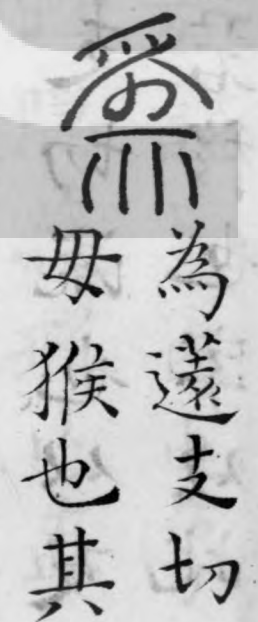 爲
為薳支切
毋猴也其